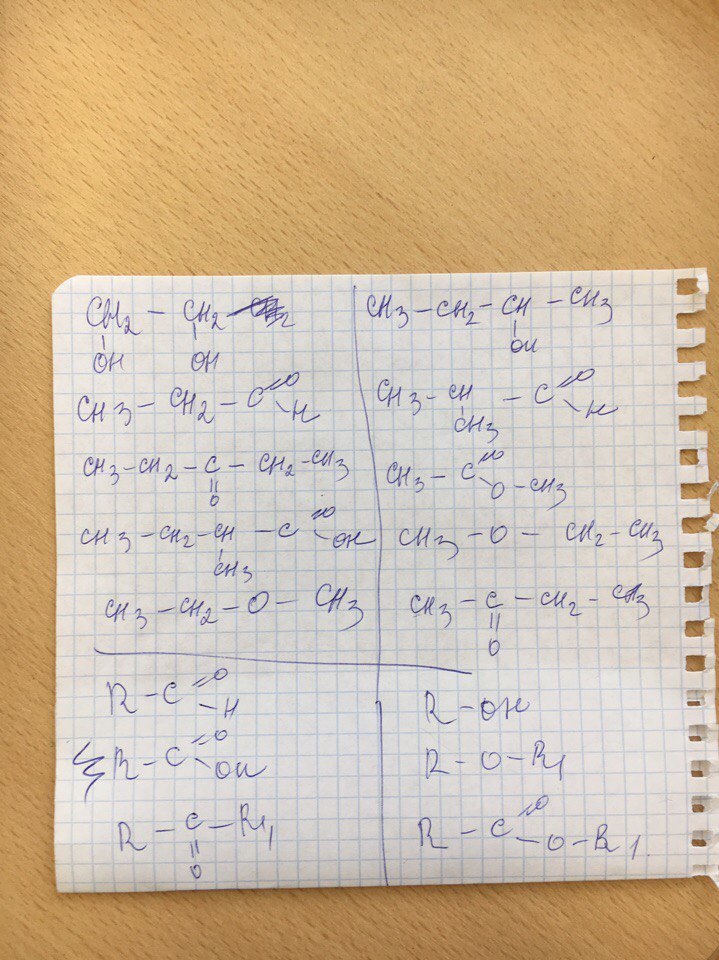 CH2 — CH2 —
OH OH
CH3 — CH2 — C =O – H
CH3 – CH2 – C – CH2 – CH3
=O
CH3 — CH2 – CH — C =O OH
CH3
CH3 – CH2 – O – CH3
CH3 – CH2 – CH – CH3
OH
CH3 – CH – C =O H
CH3
CH3 – C =O O – CH3
CH3 – O – CH2 – CH3
CH3 – C – CH2 – CH3
=O
R – C =O – H
R – C =O OH
R – C – R1
=O
R – OH
R – O – R1
R – C =O – O – R1